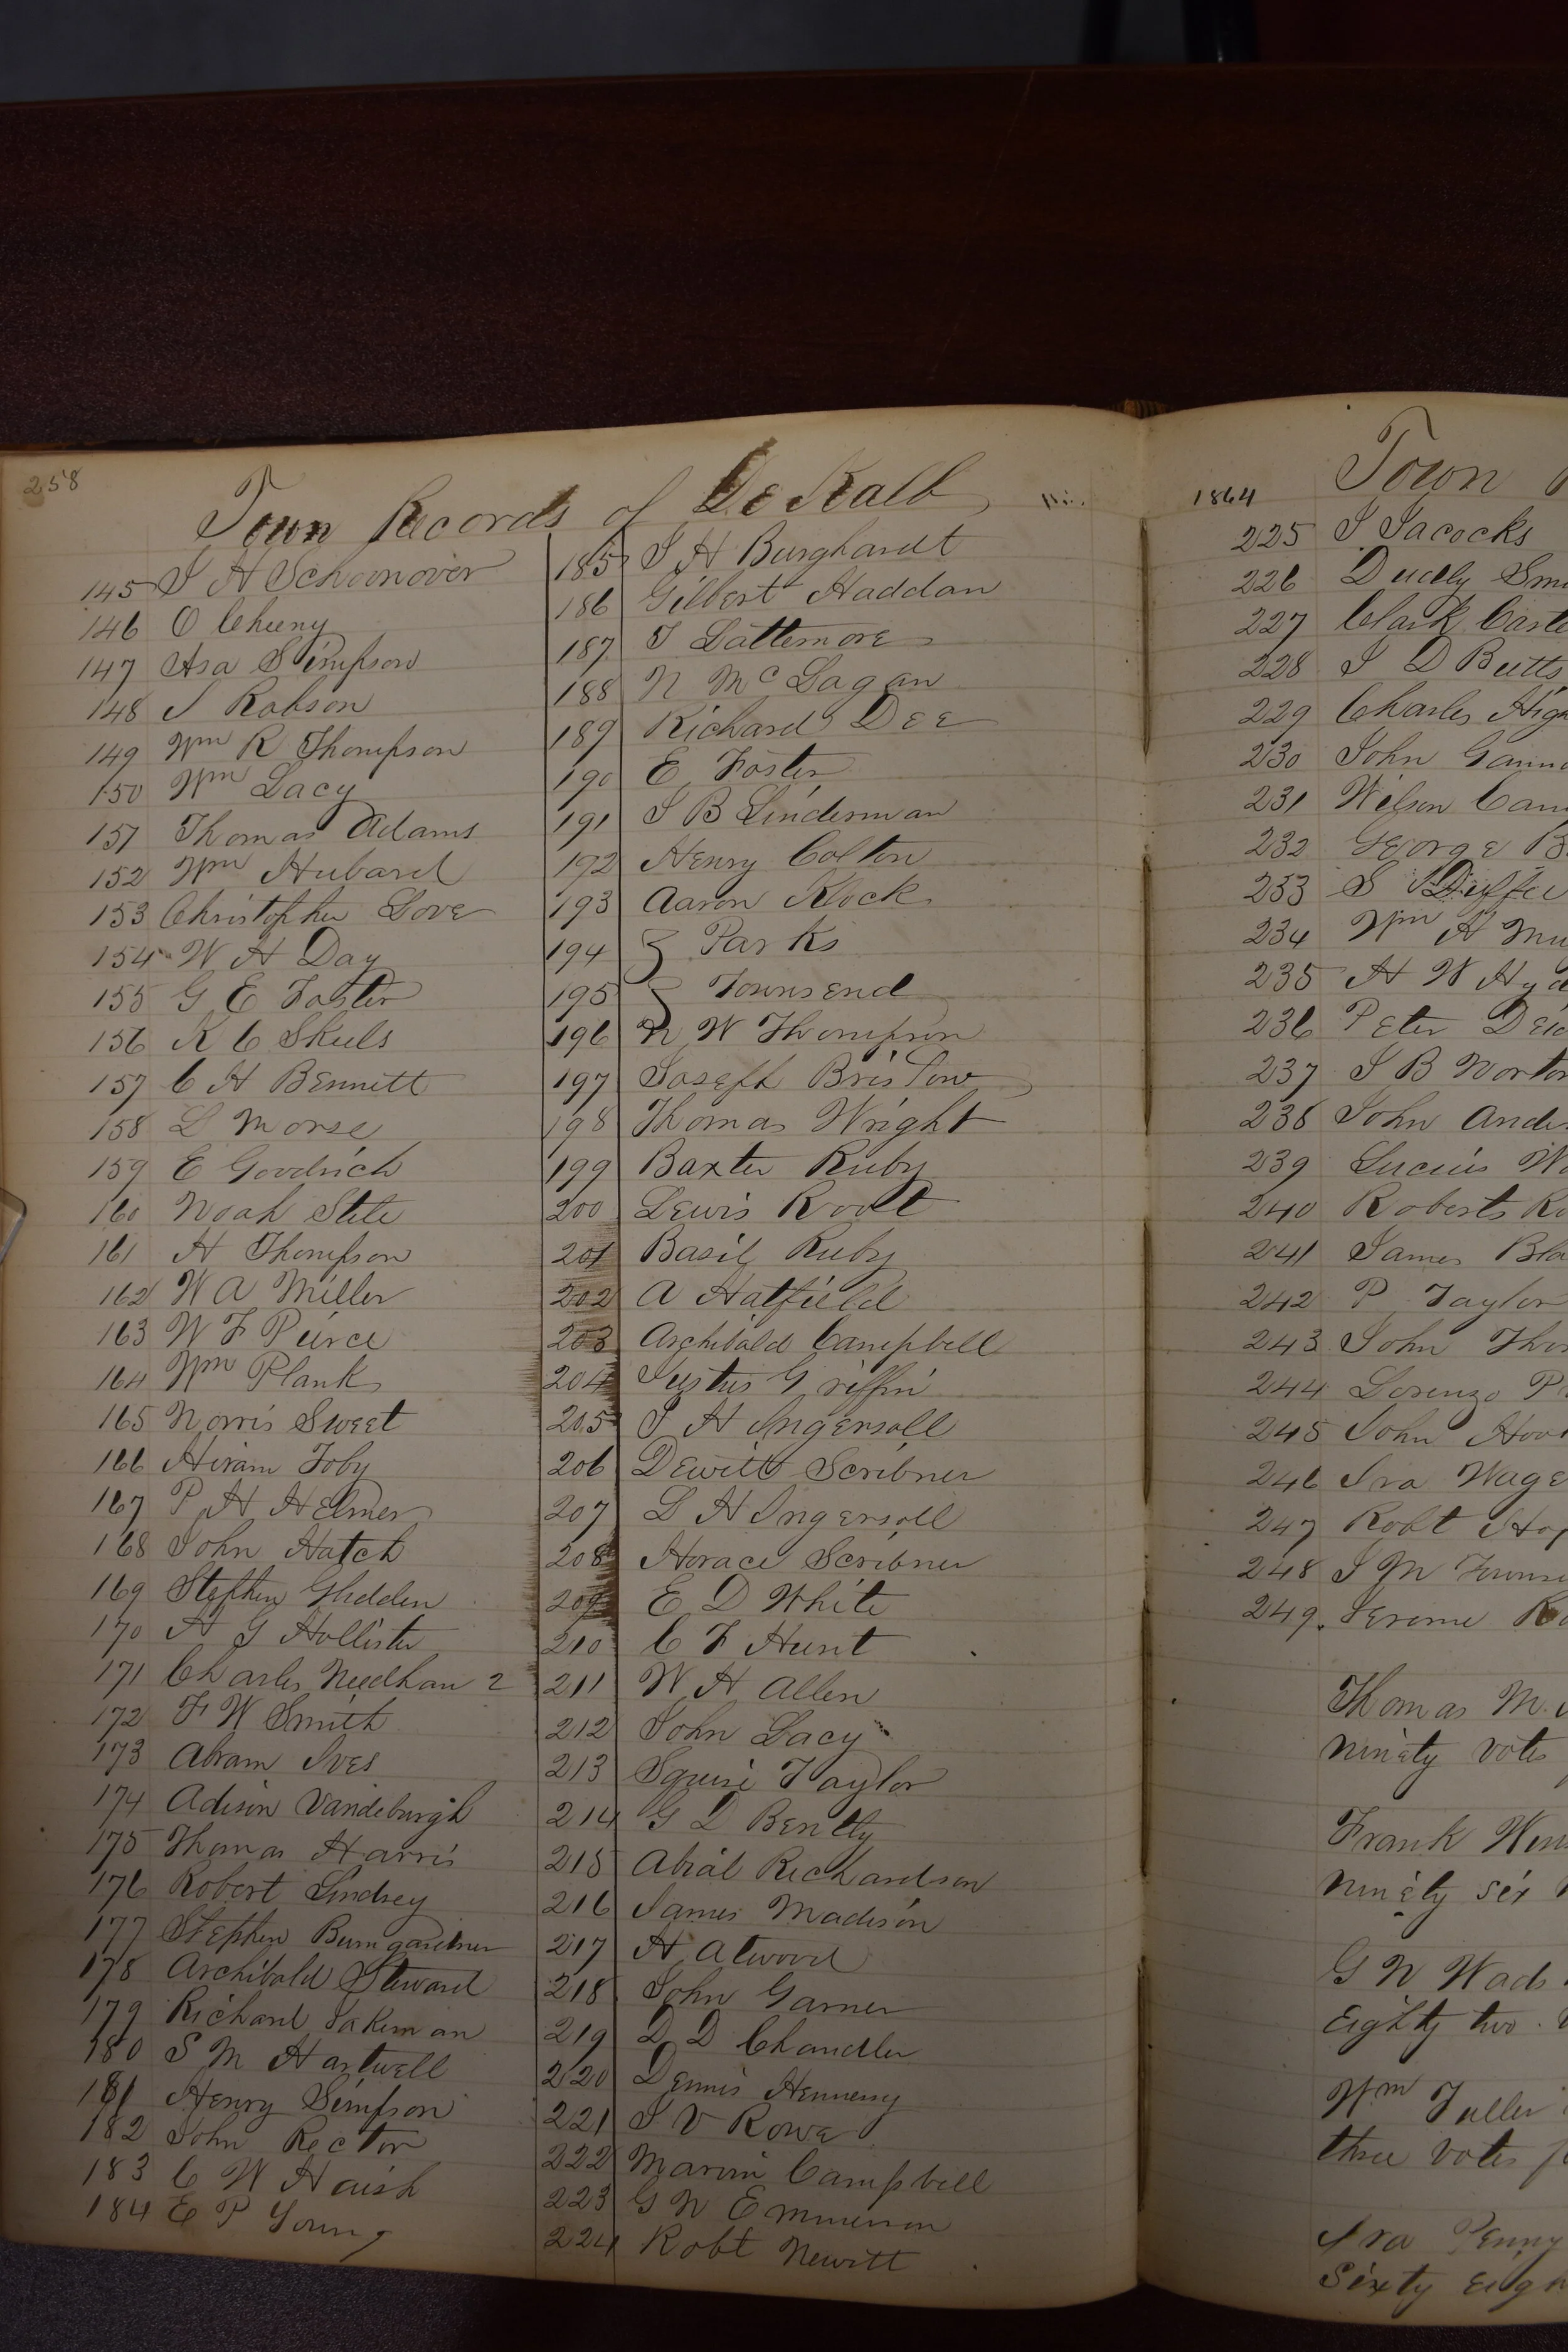 258
Town Records of De Kalb
145 J H Schoonover
146 O Cheeny
147 Asa Simpson
148 J Robson
149 Wm R Thompson
150 Wm Lacy
151 Thomas Adams
152 Wm Hubard
153 Christopher Love
154 W H Day
155 G E Foster
156 K C Skeels
157 C H Bennett
158 L Morse
159 E Goodrich
160 Noah Stile
161 H Thompson
162 W A Miller
163 W F Peirce
164 Wm Plank
165 Norris Sweet
166 Hiram Toby
167 P H Helmer
168 John Hatch
169 Stephen Glidden
170 H G Hollister
171 Charles Needham 2
172 F W Smith
173 Abram Ives
174 Adison Vandeburgh
175 Thomas Harris
176 Robert Lindsey
177 Stephen Bumgardner
178 Archibald Steward
179 Richard Jakeman
180 S M Hartwell
181 Henry Simpson
182 John Rector
183 C W Haish
184 E P Young
185 J H Burghardt
186 Gilbert Haddan
187 J Lattemore
188 N McLagan
189 Richard Dee
190 E Foster
191 J B Linderman
192 Henry Colton
193 Aaron Klock
194 Parks
195 Townsend
196 N W Thompson
197 Joseph Bristow
198 Thomas Wright
199 Baxter Ruby
200 Lewis Roolt
201 Basil Ruby
202 A Hatfield
203 Archibald Campbell
204 Justus Griffin
205 J H Ingersoll
206 Dewitt Scribner
207 L H Ingersoll
208 Horace Scribner
209 E D White
210 C F Hunt
211 W H Allen
212 John Lacy
213 Squire Taylor
214 G D Bently
215 Abial Richardson
216 James Madison
217 H Atwood
218 John Garner
219 D D Chandler
220 Dennis Hennessy
221 J V Rowe
222 Marvin Campbell
223 G N Emmerson
224 Robt Newitt
1864
Town
225 J Jacocks
226 Dudly Smi
227 Clark Carte
228 J D Butts
229 Charles High
230 John Gann
231 Wilson Cam
232 George B
233 S Duffee
234 Wm H Mu
235 H W Hyd
236 Peter Dei
237 J B Norton
238 John Ander
239 Lucius Wo
240 Roberts Ro
241 James Bla
242 P Taylor
243 John Tho
244 Lorenzo P
245 John Hoo
246 Ira Wage
247 Robt Hop
248 J M Towns
249. Jerome Ro
Thomas M.
ninety votes
Frank Win
ninety six
G N Wads
Eighty two
Wm Fuller
three votes
Ira Penny
Sixty Eigh